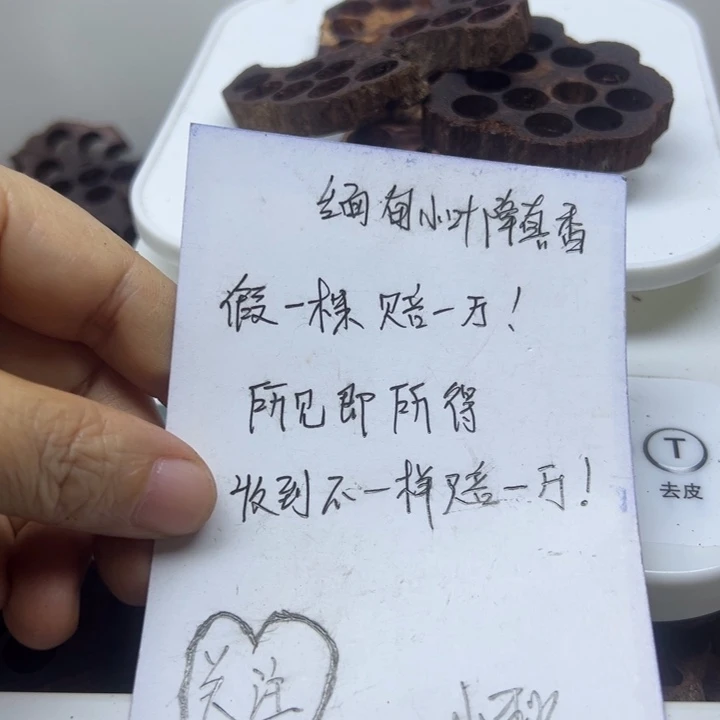 缅甸小叶降真香
假一株赔一万！
所见即所得
收到不一样赔一万！
T
去皮
关注